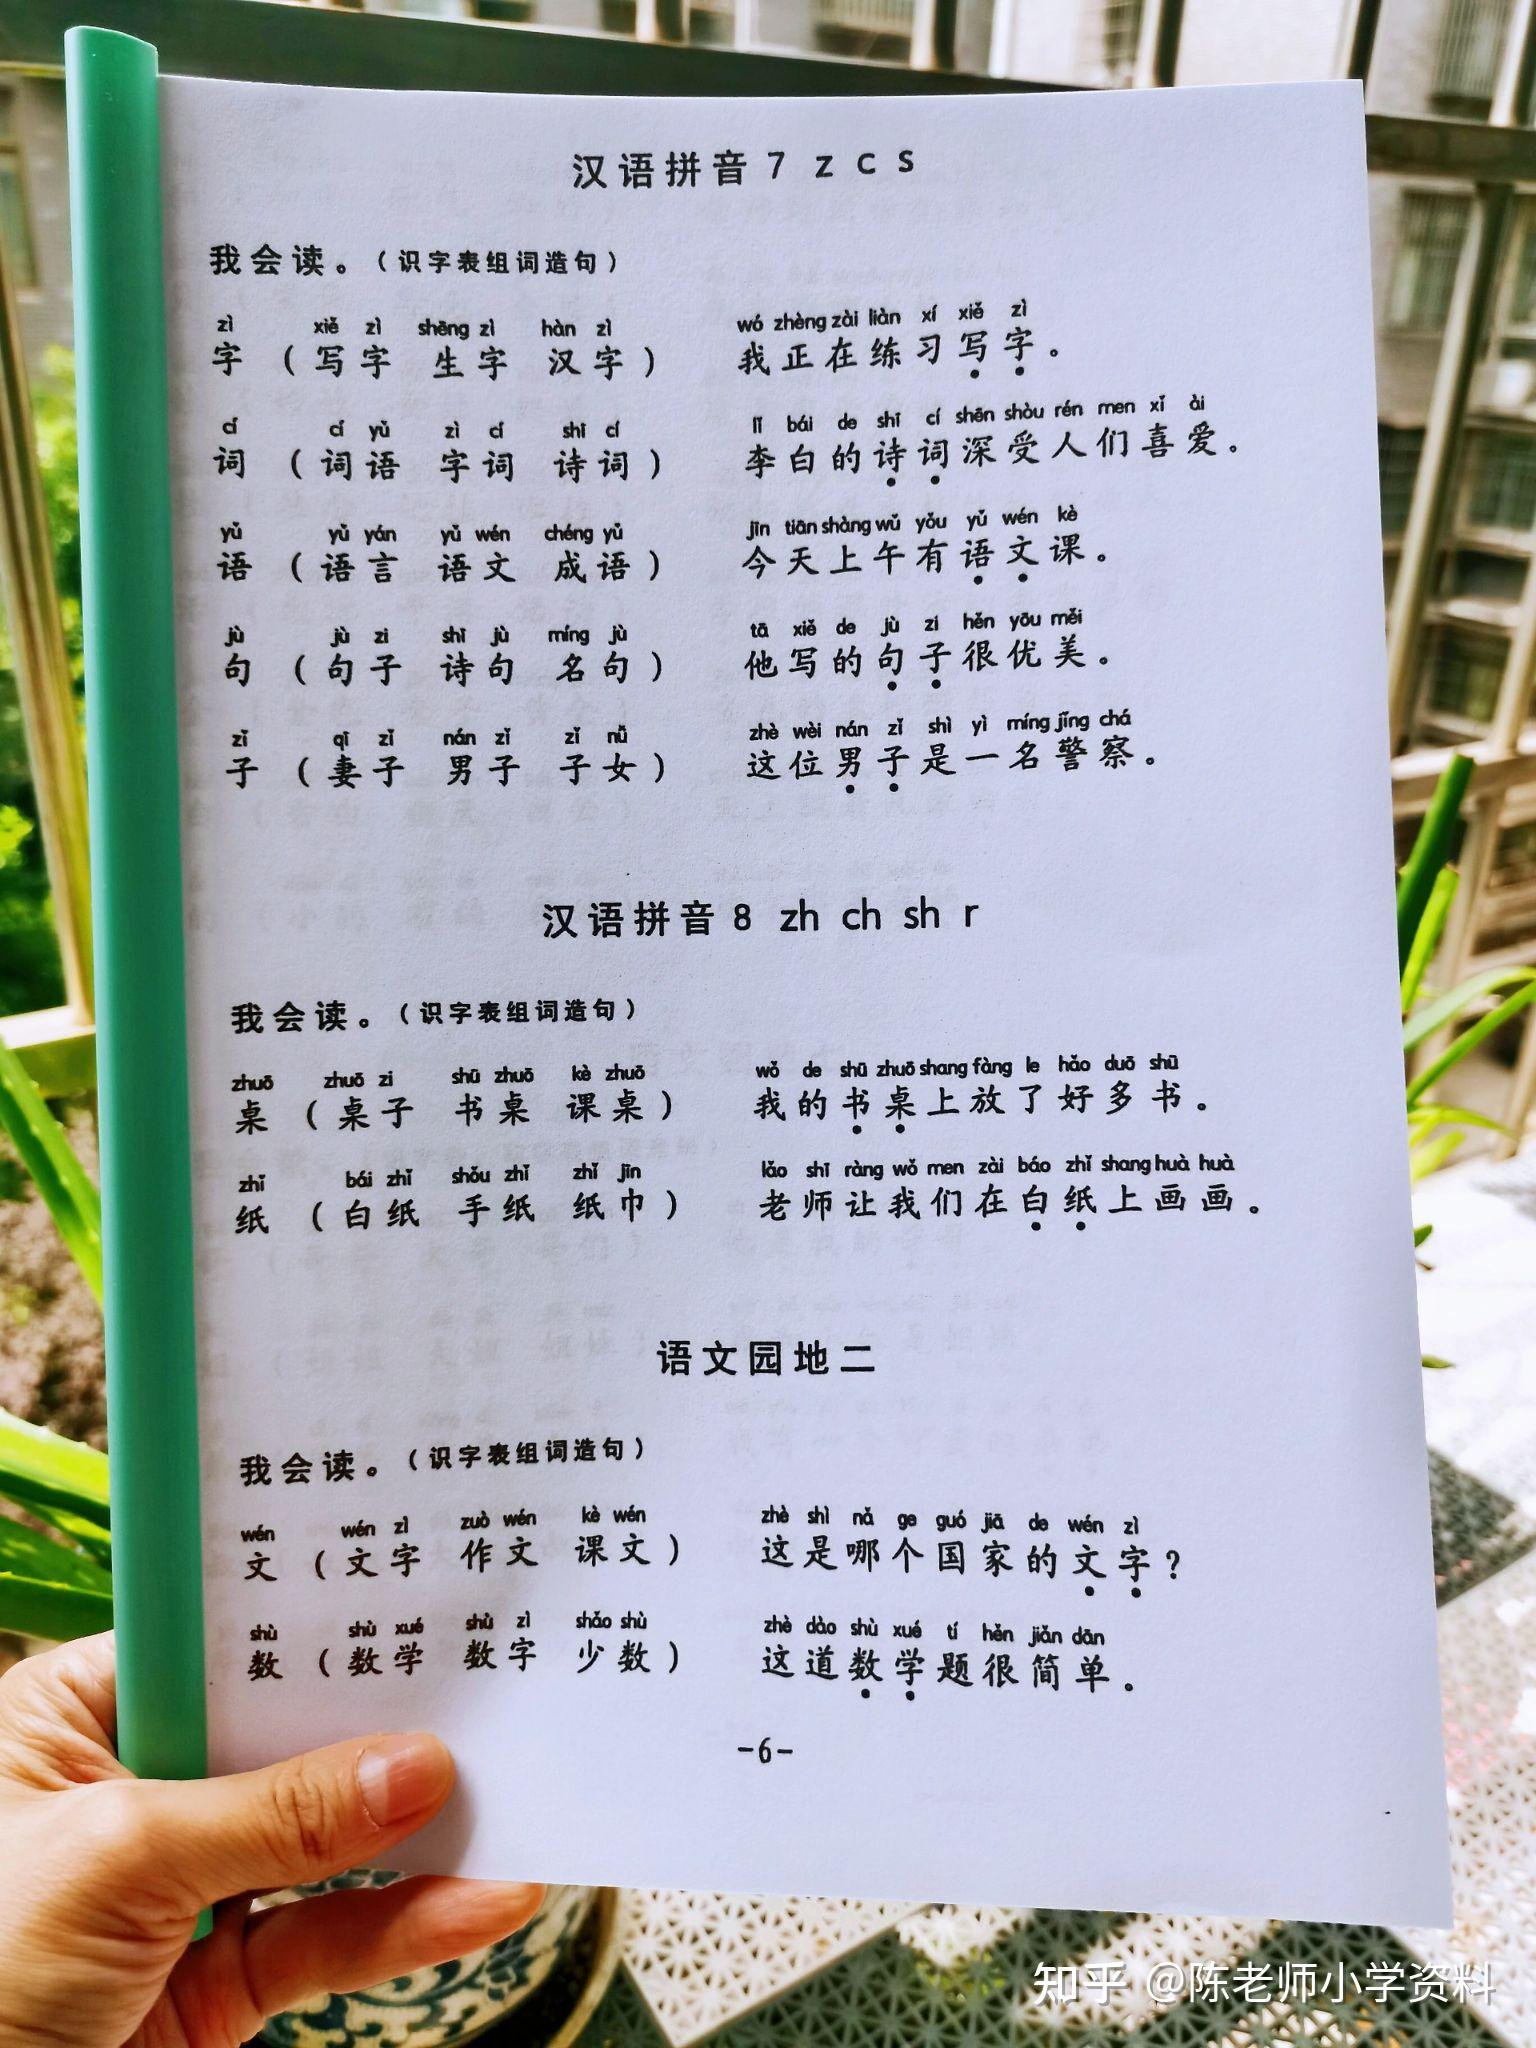 汉语拼音7 z c s
我会读。（识字表组词造句）
zì xiě zì shēng zì hàn zì wó zhèng zài liàn xí xiě zì
字（写字 生字 汉字） 我正在练习写字。
cí cí yǔ zì cí shī cí lǐ bái de shī cí shēn shòu rén men xǐ ài
词（词语 字词 诗词） 李白的诗词深受人们喜爱。
yǔ yǔ yán yǔ wén chéng yǔ jīn tiān shàng wǔ yǒu yǔ wén kè
语（语言 语文 成语） 今天上午有语文课。
jù jù zi shī jù míng jù tā xiě de jù zi hěn yōu měi
句（句子 诗句 名句） 他写的句子很优美。
zǐ qī zǐ nán zǐ zǐ nǚ zhè wèi nán zǐ shì yì míng jǐng chá
子（妻子 男子 子女） 这位男子是一名警察。
汉语拼音8 zh ch sh r
我会读。（识字表组词造句）
zhuō zhuō zi shū zhuō kè zhuō wǒ de shū zhuō shang fàng le hǎo duō shū
桌（桌子 书桌 课桌） 我的书桌上放了好多书。
zhǐ bái zhǐ shǒu zhǐ zhǐ jīn lǎo shī ràng wǒ men zài báo zhǐ shang huà huà
纸（白纸 手纸 纸巾） 老师让我们在白纸上画画。
语文园地二
我会读。（识字表组词造句）
wén wén zì zuò wén kè wén zhè shì nǎ ge guó jiā de wén zì
文（文字 作文 课文） 这是哪个国家的文字？
shù shù xué shù zì shǎo shù zhè dào shù xué tí hěn jiǎn dān
数（数学 数字 少数） 这道数学题很简单。
-6-
知乎 @陈老师小学资料